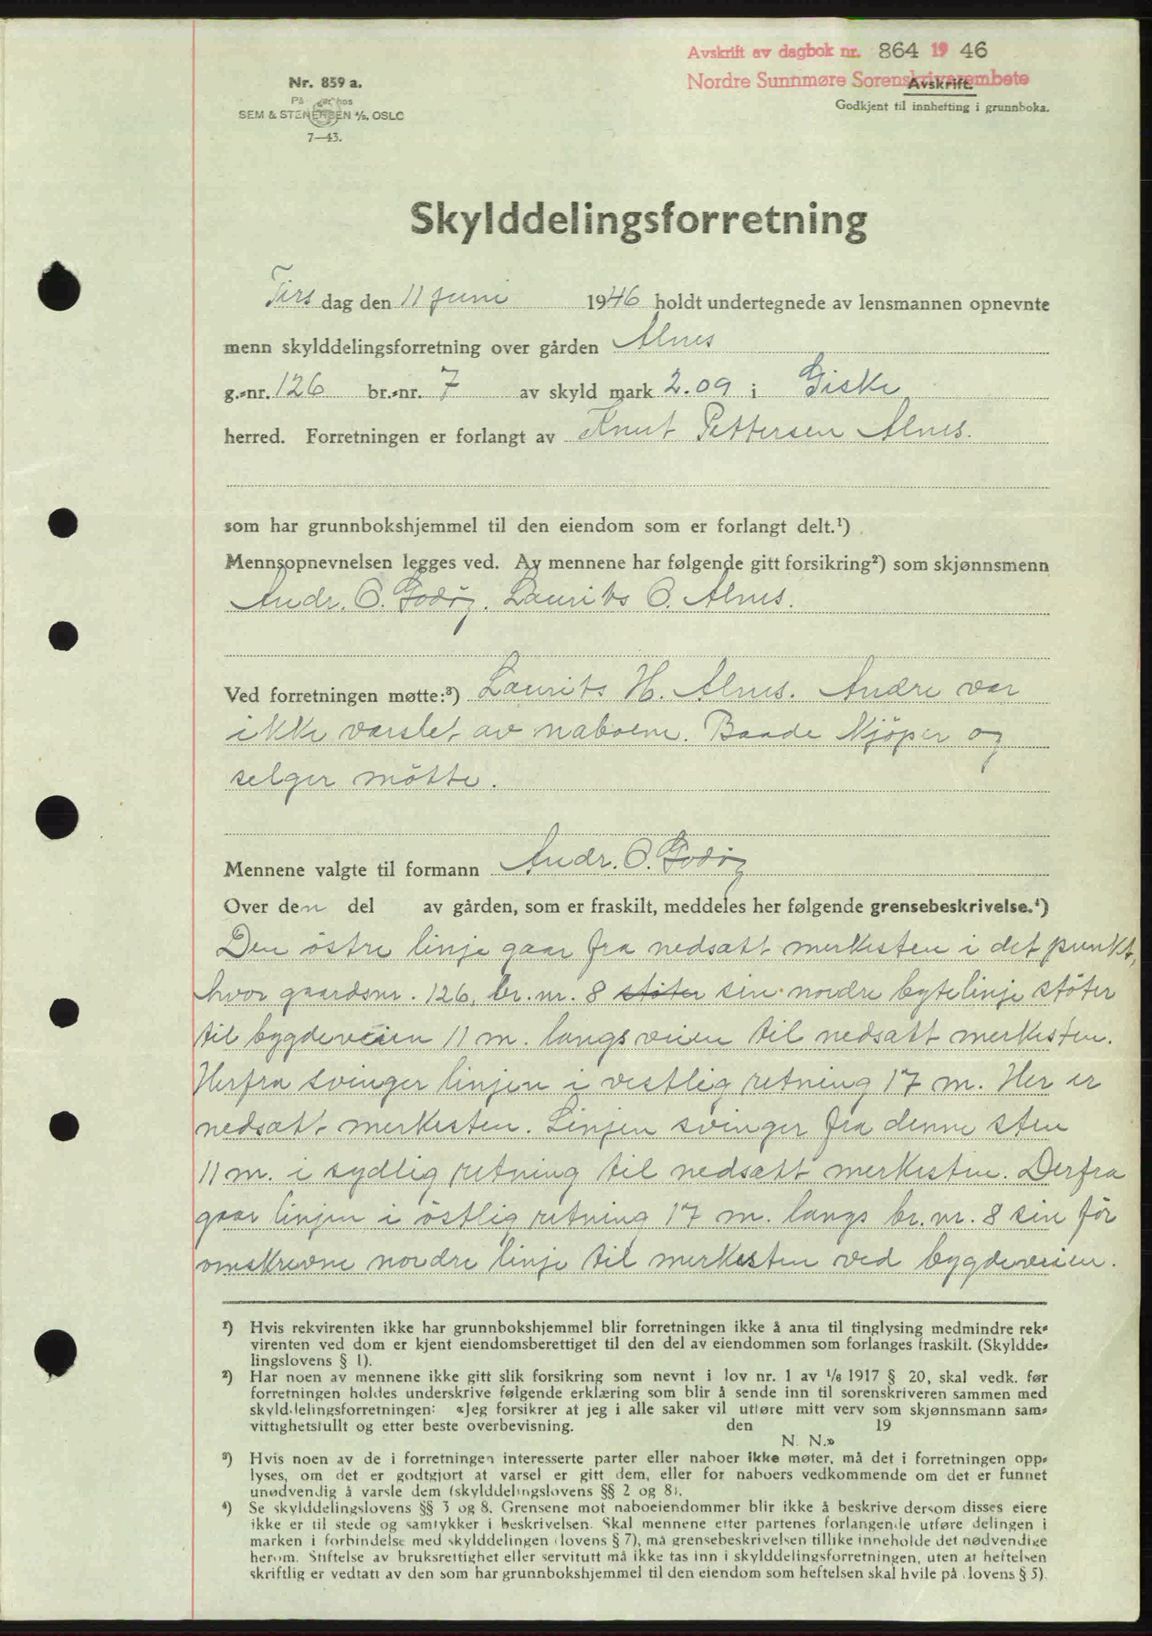 Avskrift av dagbok nr. 864 19 46
Nordre Sunnmøre Sorenskriverembete
Nr. 859 a.
Avskrift.
På hos
SEM & STENERSEN A/S, OSLO
Godkjent til innhefting i grunnboka.
7—43.
Skylddelingsforretning
Tirs dag den 11 juni 1946 holdt undertegnede av lensmannen opnevnte
menn skylddelingsforretning over gården Alnes
g.-nr. 126 br.-nr. 7 av skyld mark 2.09 i Giske
herred. Forretningen er forlangt av Knut Pettersen Alnes.
som har grunnbokshjemmel til den eiendom som er forlangt delt.¹)
Mennsopnevnelsen legges ved. Av mennene har følgende gitt forsikring²) som skjønnsmenn
Andr. O. Godøy. Laurits O. Alnes.
Ved forretningen møtte:³) Laurits H. Alnes. Andre var
ikke varslet av naboene. Baade kjöper og
selger mötte.
Mennene valgte til formann Andr. O. Godöy
Over den del av gården, som er fraskilt, meddeles her følgende grensebeskrivelse.⁴)
Den östre linje gaar fra nedsatt merkesten i det punkt,
hvor gaardsnr. 126, br. nr. 8 støter sin nordre bytelinje støter
til bygdeveien 11 m. langs veien til nedsatt merkesten.
Herfra svinger linjen i vestlig retning 17 m. Her er
nedsatt merkesten. Linjen svinger fra denne sten
11 m. i sydlig retning til nedsatt merkesten. Derfra
gaar linjen i östlig retning 17 m. langs br. nr. 8 sin för
omskrevne nordre linje til merkesten ved bygdeveien.
¹) Hvis rekvirenten ikke har grunnbokshjemmel blir forretningen ikke å anta til tinglysing medmindre rek-
virenten ved dom er kjent eiendomsberettiget til den del av eiendommen som forlanges fraskilt. (Skyldde-
lingslovens § 1).
²) Har noen av mennene ikke gitt slik forsikring som nevnt i lov nr. 1 av 1/6 1917 § 20, skal vedk. før
forretningen holdes underskrive følgende erklæring som blir å sende inn til sorenskriveren sammen med
skylddelingsforretningen: «Jeg forsikrer at jeg i alle saker vil utføre mitt verv som skjønnsmann sam-
vittighetsfullt og etter beste overbevisning. den 19
N. N.»
³) Hvis noen av de i forretningen interesserte parter eller naboer ikke møter, må det i forretningen opp-
lyses, om det er godtgjort at varsel er gitt dem, eller for naboers vedkommende om det er funnet
unødvendig å varsle dem (skylddelingslovens §§ 2 og 8).
⁴) Se skylddelingslovens §§ 3 og 8. Grensene mot naboeiendommer blir ikke å beskrive dersom disses eiere
ikke er til stede og samtykker i beskrivelsen. Skal mennene etter partenes forlangende utføre delingen i
marken i forbindelse med skylddelingen (lovens § 7), må grensebeskrivelsen tillike inneholde det nødvendige
herom. Stiftelse av bruksrettighet eller servitutt må ikke tas inn i skylddelingsforretningen, uten at heftelsen
skriftlig er vedtatt av den som har grunnbokshjemmel til den eiendom som heftelsen skal hvile på (lovens § 5).